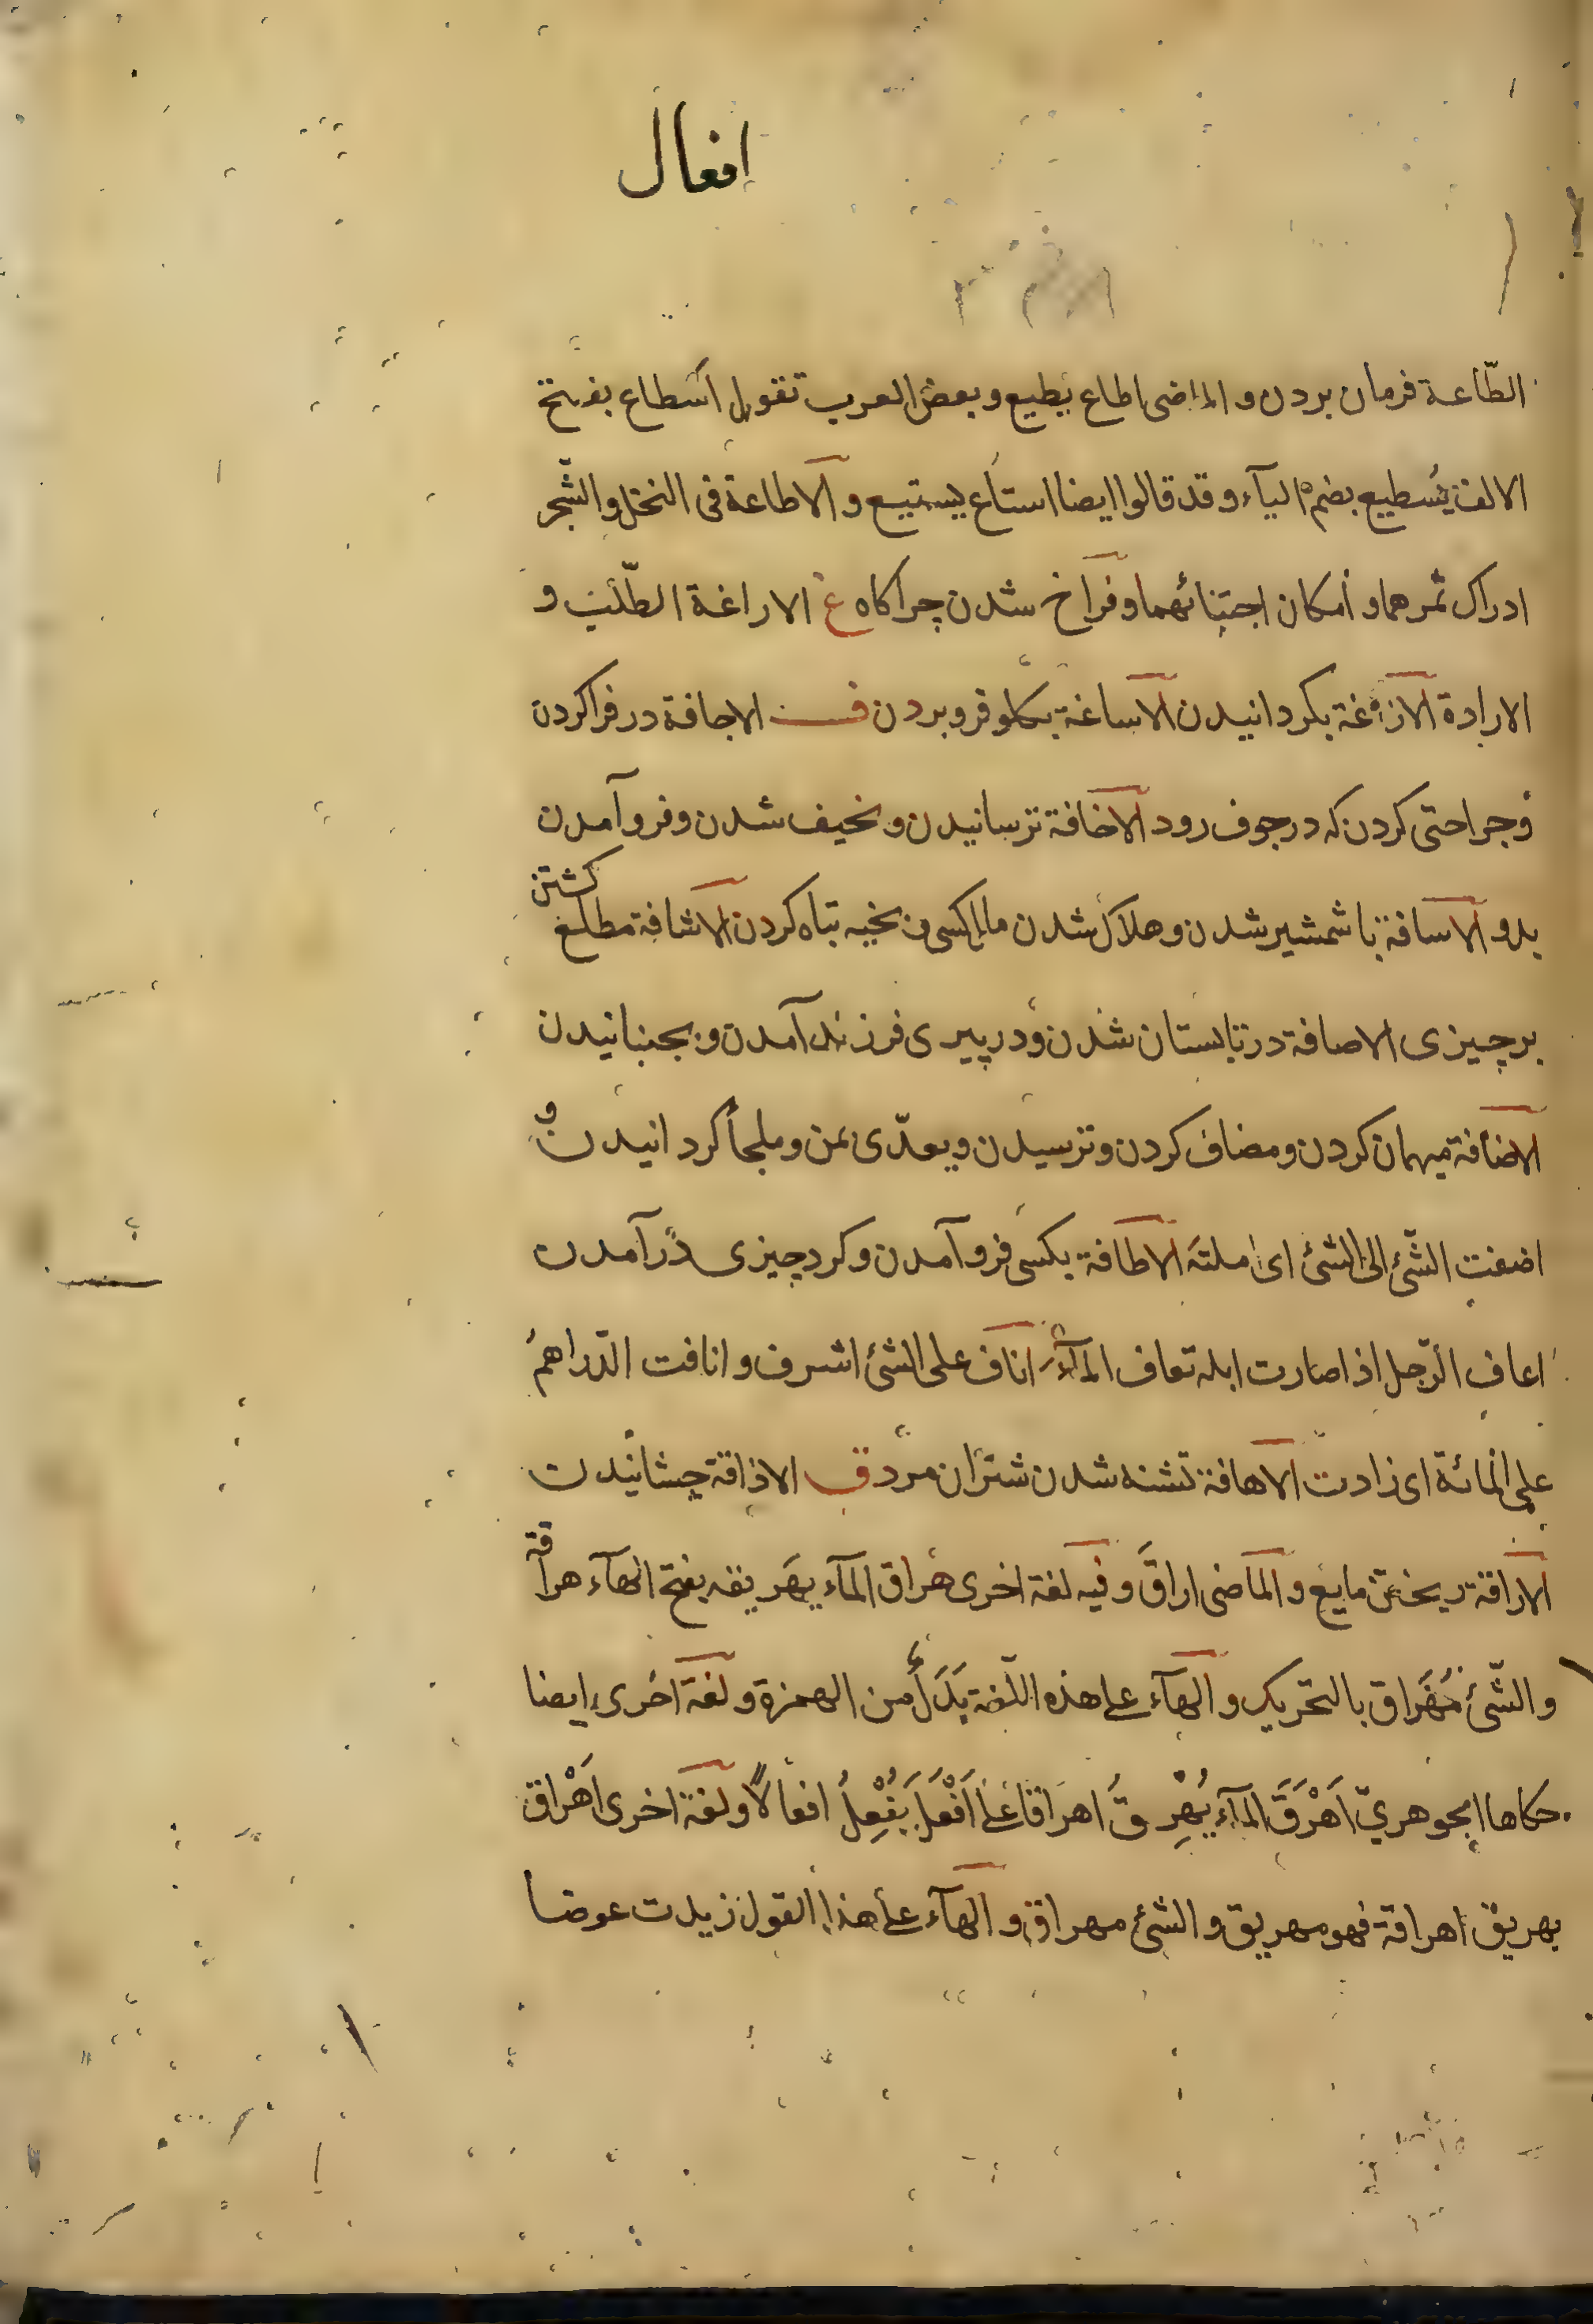 افعال
الطّاعة فرمان بردن و الماضی اطاع یطیع و بعض العرب تقول اَسطاع بفتح
الالف یُسطیع بضم الیآء و قد قالوا ایضا استاع یستیع و الاطاعة فی النخل و الشّجر
ادراک ثمرهما و امکان اجتنائهما و فراخ شدن چراکاه غ الاراغة الطّلب و
الارادة الازاغة بکردانیدن الاساغة بکلو فرو بردن ف الاجافة در فرا کردن
و جراحتی کردن که در جوف رود الاخافة ترسانیدن و نخیف شدن و فرو آمدن
بدو الاسافة با شمشیر شدن و هلاک شدن مال کسی و بخیه تباه کردن الاشافة مطلع کشتن
بر چیزی الاصافة در تابستان شدن و در پیری فرزند آمدن و بجنبانیدن
الاضافة میهمان کردن و مضاف کردن و ترسیدن و یعدّی بمن و ملجأ کردانیدن و
اضفت الشّئ الی الشئ ای املته الاطافة بکسی فرو آمدن و کرد چیزی درآمدن
اعاف الرّجل اذا صارت ابله تعاف المآء اناف علی الشئ اشرف و انافت الدّراهمُ
علی المائة ای زادت الاهافة تشنه شدن شتران مرد ق الاذاقة چشانیدن
الاراقة ریختن مایع و الماضی اراقَ و فیه لغة اخری هراق المآء یهَریقه بفتح الهآء هراقة
و الشّئ مُهَراق بالتحریک و الهآء علی هذه اللّغة بَدَلٌ من الهمزة و لغة اخری ایضا
حکاها الجوهریّ اَهْرَقَ المآء یُهْرِقُ اهراقا علی اَفْعَلَ یُفْعِلُ افعالًا و لغة اخری اَهْراق
یهریق اهراقة فهو مهریق و الشئ مهراق و الهآء علی هذا القول زیدت عوضا